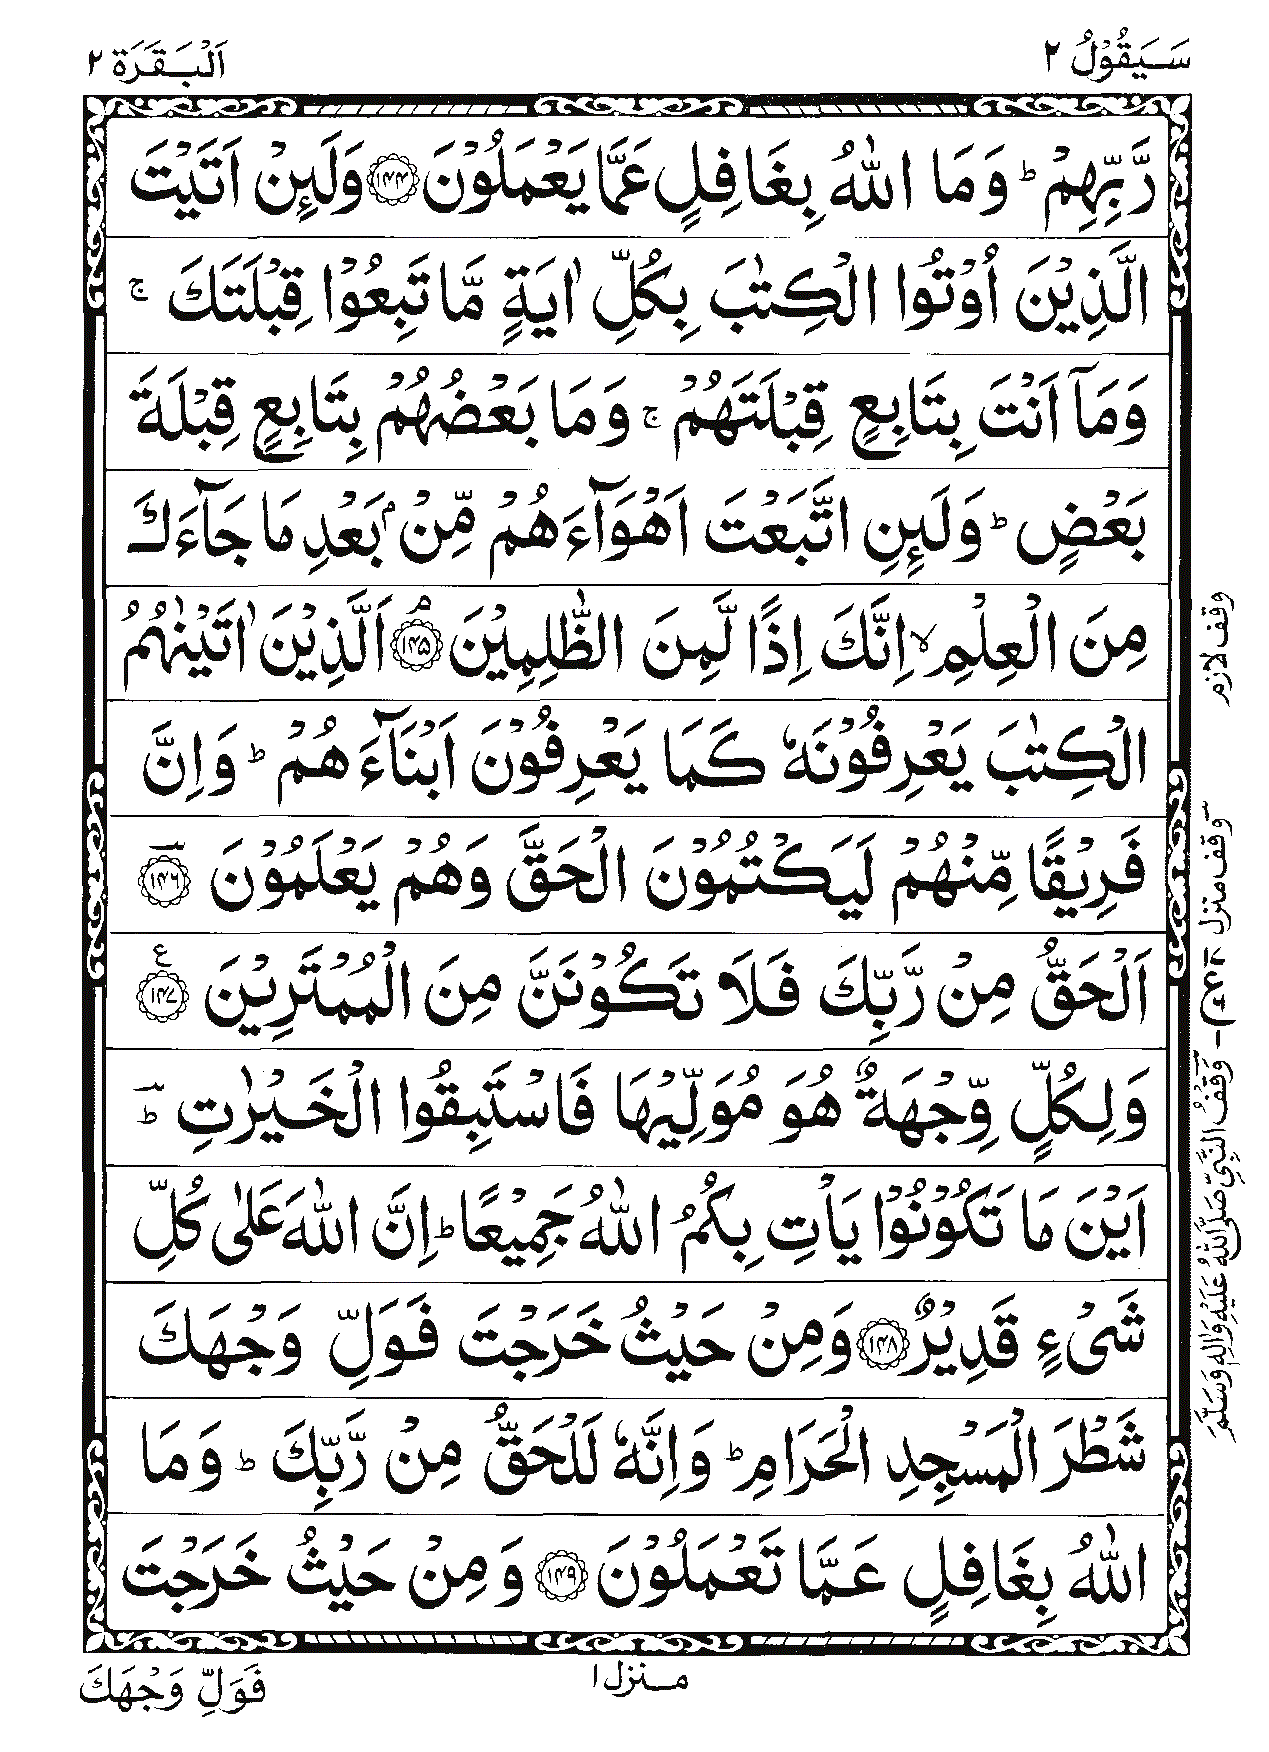 سَیَقُوْلُ ٢
اَلْبَقَرَة ٢
رَّبِّهِمْ ؕ وَمَا اللّٰهُ بِغَافِلٍ عَمَّا یَعْمَلُوْنَ ﴿۱۴۴﴾ وَلَىِٕنْ اَتَیْتَ
الَّذِیْنَ اُوْتُوا الْكِتٰبَ بِكُلِّ اٰیَةٍ مَّا تَبِعُوْا قِبْلَتَكَ ۚ
وَمَاۤ اَنْتَ بِتَابِعٍ قِبْلَتَهُمْ ۚ وَمَا بَعْضُهُمْ بِتَابِعٍ قِبْلَةَ
بَعْضٍ ؕ وَلَىِٕنِ اتَّبَعْتَ اَهْوَآءَهُمْ مِّنْۢ بَعْدِ مَا جَآءَكَ
مِنَ الْعِلْمِ ۙ اِنَّكَ اِذًا لَّمِنَ الظّٰلِمِیْنَ ۘ﴿۱۴۵﴾ اَلَّذِیْنَ اٰتَیْنٰهُمُ
الْكِتٰبَ یَعْرِفُوْنَهٗ كَمَا یَعْرِفُوْنَ اَبْنَآءَهُمْ ؕ وَاِنَّ
فَرِیْقًا مِّنْهُمْ لَیَكْتُمُوْنَ الْحَقَّ وَهُمْ یَعْلَمُوْنَ ﴿۱۴۶﴾
اَلْحَقُّ مِنْ رَّبِّكَ فَلَا تَكُوْنَنَّ مِنَ الْمُمْتَرِیْنَ ﴿۱۴۷﴾ ع
وَلِكُلٍّ وِّجْهَةٌ هُوَ مُوَلِّیْهَا فَاسْتَبِقُوا الْخَیْرٰتِ ؕ
اَیْنَ مَا تَكُوْنُوْا یَاْتِ بِكُمُ اللّٰهُ جَمِیْعًا ؕ اِنَّ اللّٰهَ عَلٰی كُلِّ
شَیْءٍ قَدِیْرٌ ﴿۱۴۸﴾ وَمِنْ حَیْثُ خَرَجْتَ فَوَلِّ وَجْهَكَ
شَطْرَ الْمَسْجِدِ الْحَرَامِ ؕ وَاِنَّهٗ لَلْحَقُّ مِنْ رَّبِّكَ ؕ وَمَا
اللّٰهُ بِغَافِلٍ عَمَّا تَعْمَلُوْنَ ﴿۱۴۹﴾ وَمِنْ حَیْثُ خَرَجْتَ
وقف لازم
وقف منزل
وَقْفُ النَّبِیِّ صَلَّی اللّٰهُ عَلَیْهِ وَاٰلِهٖ وَسَلَّمَ
منزل ١
فَوَلِّ وَجْهَكَ